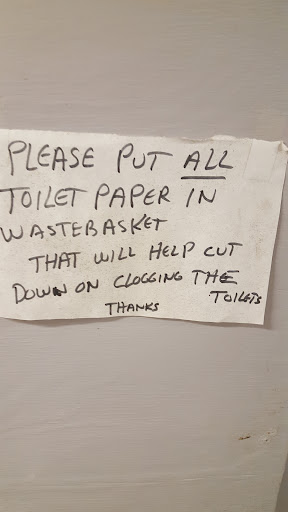 PLEASE PUT ALL
TOILET PAPER IN
WASTEBASKET
THAT WILL HELP CUT
DOWN ON CLOGGING THE
TOILETS
THANKS